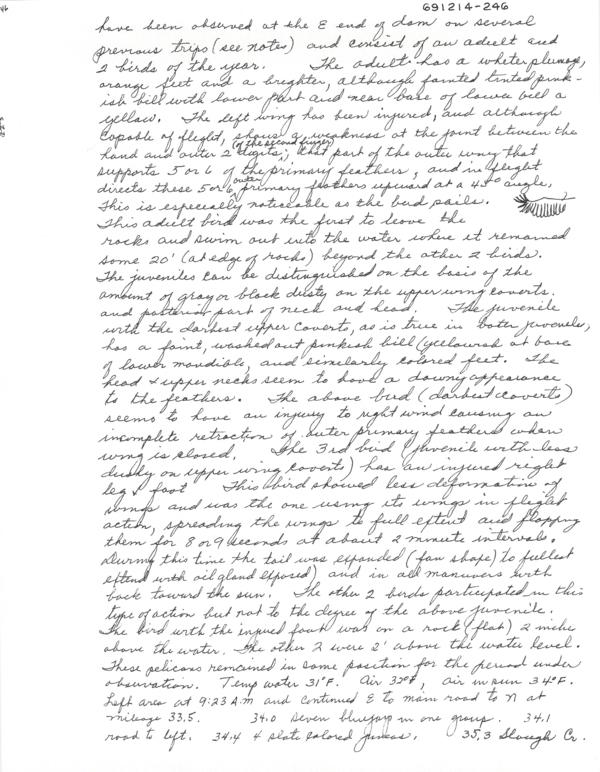 691214-246
have been observed at the E end of dam on several
previous trips (see notes) and consist of an adult and
2 birds of the year. The adult has a whiter plumage,
orange feet and a brighter, although fainted tinted pink-
ish bill with lower part and near base of lower bill a
yellow. The left wing has been injured, and although
capable of flight, shows a weakness at the joint between the
hand and outer 2 digits, (of the second finger) that part of the outer wing that
supports 5 or 6 of the primary feathers, and in flight
directs these 5 or 6 outer primary feathers upward at a 45° angle.
This is especially noticeable as the bird sails.
This adult bird was the first to leave the
rocks and swim out into the water where it remained
some 20' (at edge of rocks) beyond the other 2 birds.
The juveniles can be distinguished on the basis of the
amount of gray or black dusty on the upper wing coverts.
and posterior part of neck and head. The juvenile
with the darkest upper coverts, as is true in both juveniles,
has a faint, washed out pinkish bill (yellowish at base
of lower mandible, and similarly colored feet. The
head & upper necks seem to have a downy appearance
to the feathers. The above bird (darkest coverts)
seems to have an injury to right wind causing an
incomplete retraction of outer primary feathers when
wing is closed. The 3rd bird (juvenile with less
dusky on upper wing coverts) has an injured right
leg & foot This bird showed less deformation of
wings and was the one using its wings in flight
action, spreading the wings to full extent and flapping
them for 8 or 9 seconds at about 2 minute intervals.
During this time the tail was expanded (fan shape) to fullest
extent with oil gland exposed) and in all manuvers with
back toward the sun. The other 2 birds participated in this
type of action but not to the degree of the above juvenile.
The bird with the injured foot was on a rock (flat) 2 inches
above the water. The other 2 were 2' above the water level.
These pelicans remained in same position for the period under
observation. Temp water 31°F. Air 32°F, air in sun 34°F.
Left area at 9:23 A.M and continued E to main road to N at
mileage 33.5. 34.0 seven bluejays in one group. 34.1
road to left. 34.4 4 slate colored juncos. 35.3 Slough Cr.